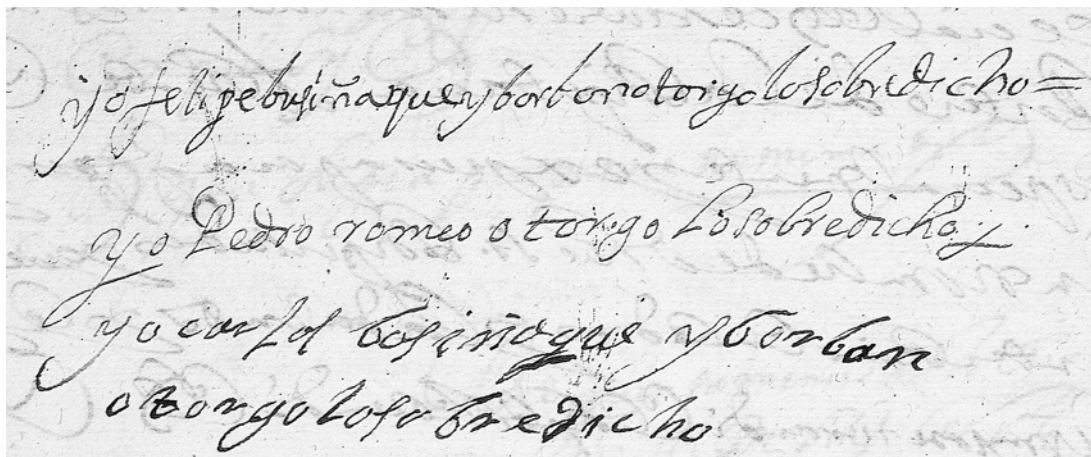 yo felipe busiñaque y borbon otorgo lo sobredicho =
yo Pedro romeo otorgo lo sobredicho
yo carlos bosiñaque y borbon
otorgo lo sobredicho